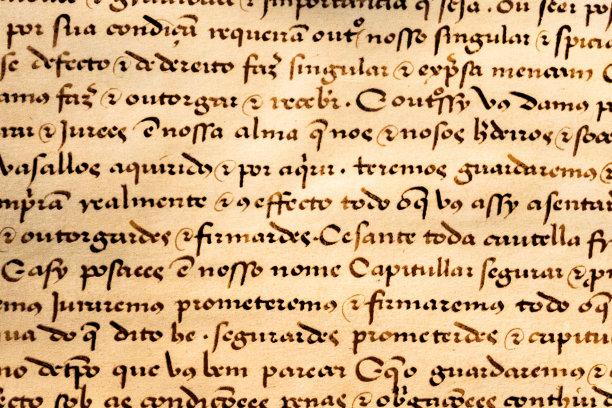 importancia q̃ seja. Ou seer
por sua condiçã requeirã outº nosso singular ⁊
se defecto ⁊ de dereito fazr̃ singular ⁊ exp̃sa mencam
amos fazr̃ ⁊ outorgar ⁊ recebr̃. E outºssy vos damos
⁊ Jurees ẽ nossa alma q̃ nos ⁊ nosos hr̃deiros ⁊
vasallos aquiridos ⁊ por aq̃rir. teremos guardaremos ⁊
mp̃rã realmente ⁊ cõ effecto todo oq̃ vos assy asentar
⁊ outorgardes ⁊ firmardes. Cesante toda cautella
E asy possaees ẽ nosso nome Capitullar segurar ⁊
emos Juraremos prometeremos ⁊ firmaremos todo oq̃
do q̃ dito he. segurardes prometerdes ⁊ capitu
no detp̃o que vos bem parecer E q̃ o guardaremos ⁊
sob as condiçoees penas ⁊ obr̃gaçoees conthiud